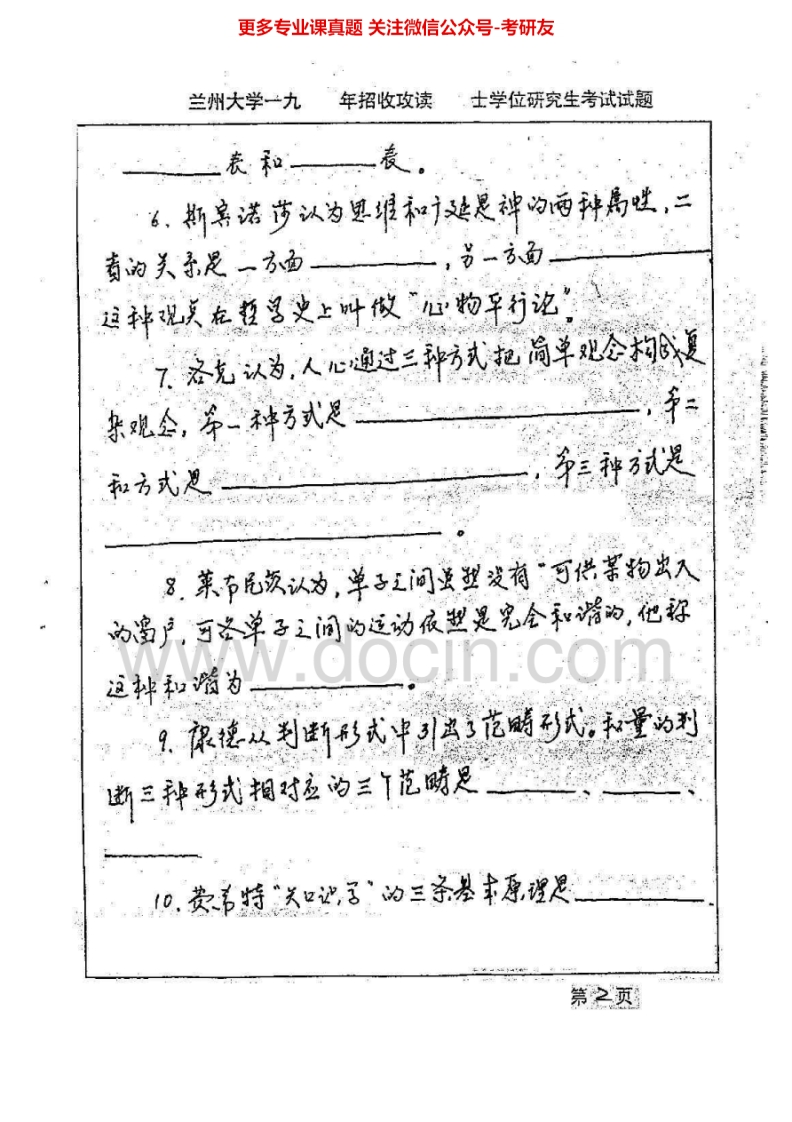 更多专业课真题 关注微信公众号-考研友
兰州大学一九 年招收攻读 士学位研究生考试试题
______表和______表。
6. 斯宾诺莎认为思维和广延是神的两种属性，二
者的关系是一方面________，另一方面________
这种观点在哲学史上叫做“心物平行论”。
7. 洛克认为，人心通过三种方式把简单观念构成复
杂观念，第一种方式是________________，第二
和方式是________________，第三种方式是
________________。
8. 莱布尼茨认为，单子之间虽然没有“可供某物出入
的窗户，可各单子之间的运动依然是完全和谐的，他称
这种和谐为________。
www.docin.com
9. 康德从判断形式中引出了范畴形式。和量的判
断三种形式相对应的三个范畴是______、______、
______
10. 费希特“知识学”的三条基本原理是________
第2页